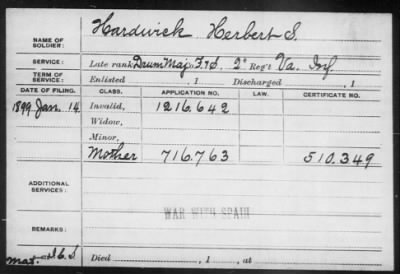 NAME OF SOLDIER: Hardwick Herbert S.
SERVICE: Late rank Drum Maj, F & S, 2" Reg't Va. Inf.
TERM OF SERVICE: Enlisted , 1 Discharged , 1
DATE OF FILING. CLASS. APPLICATION NO. LAW. CERTIFICATE NO.
1899 Jan. 14 Invalid, 1216.642
Widow,
Minor,
Mother 716.763 510.349
ADDITIONAL SERVICES:
WAR WITH SPAIN
REMARKS:
Died , 1 , at
Mat.